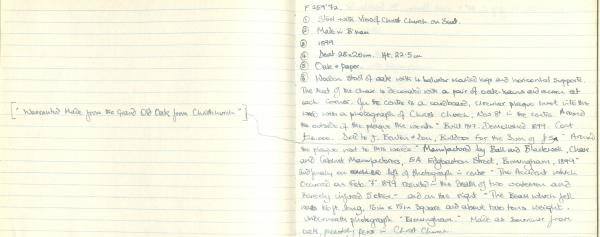 F 259'72
① Stool with View of Christ Church on Seat.
② Made in B'ham
③ 1899
④ Seat 28 x 20cm. Ht. 22.5cm
⑤ Oak & paper.
⑥ Wooden stool of oak with 4 baluster turned legs and horizontal supports.
The seat of the chair is decorated with a pair of oak leaves and acorn at
each corner. In the centre is a cardboard, circular plaque inset into the
wood with a photograph of Christ Church, New St in the centre. Around
the outside of the plaque the words "Built 1817. Demolished 1899. Cost
Sold to J. Bowen & Son, Builders for the Sum of Around
["Warranted Made from the Grand Old Oak from Christchurch"]
the plaque next to this words "Manufactured by Ball and Chair
and Cabinet Manufacturers, 5A Edgbaston Street, Birmingham, 1899"
and finally on left of photograph in centre "The Accident which
occurred on Feb. 7th 1899 resulted in the death of two workmen and
severely injured 5 other." and on the right "The Beam which fell
was long, 15in x 15in Square and about two tons weight.
Underneath photograph "Birmingham." Made as souvenir from
oak, possibly pews in Christ Church.